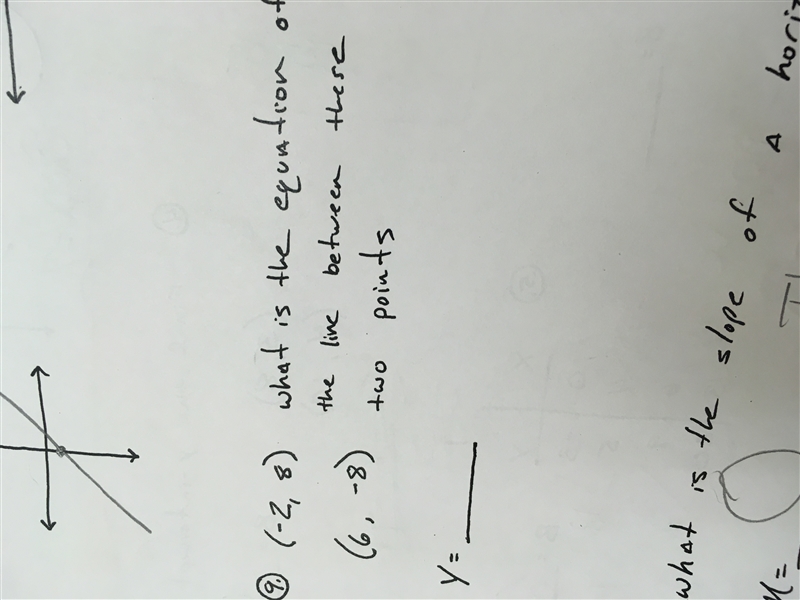 9. (-2, 8) what is the equation of
(6, -8) the line between these
two points
y =
what is the slope of a